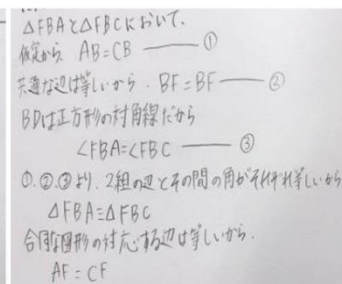 △FBAと△FBCにおいて、
仮定から AB=CB ①
共通な辺は等しいから、BF=BF ②
BDは正方形の対角線だから
∠FBA=∠FBC ③
①、②、③より、2組の辺とその間の角がそれぞれ等しいから
△FBA≡△FBC
合同な図形の対応する辺は等しいから、
AF=CF